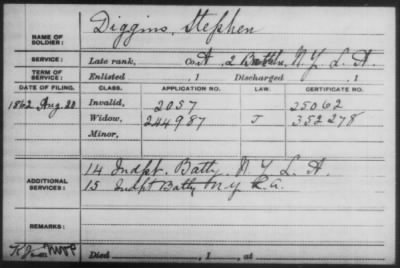 NAME OF SOLDIER: Diggins, Stephen
SERVICE: Late rank, Co. A, 2 Battn. N.Y. L. A.
TERM OF SERVICE: Enlisted , 1 Discharged , 1
DATE OF FILING. CLASS. APPLICATION NO. LAW. CERTIFICATE NO.
1862 Aug. 20 Invalid, 2057 25062
Widow, 244987 J 352278
Minor,
ADDITIONAL SERVICES: 14 Indpt. Batty. N Y L A.
15 Indpt Batty N.Y. L.A.
REMARKS:
Died , 1 , at